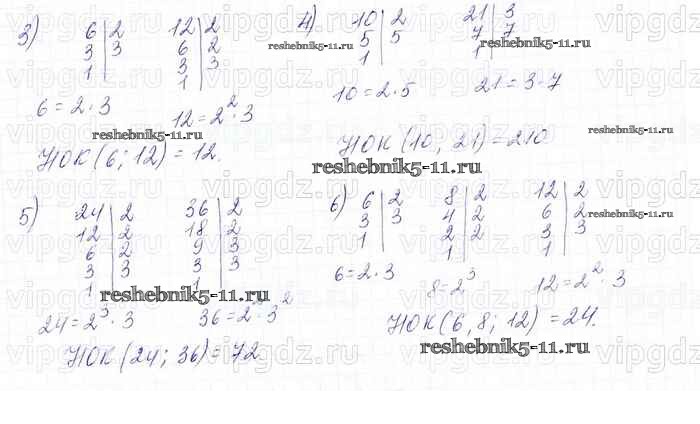 3) 6 | 2   12 | 2
3 | 3   6 | 2
1 |   3 | 3
1 |
6 = 2 · 3   12 = 2² · 3
НОК (6; 12) = 12.
4) 10 | 2   21 | 3
5 | 5   7 | 7
1 |   1 |
10 = 2 · 5   21 = 3 · 7
НОК (10, 21) = 210
5) 24 | 2   36 | 2
12 | 2   18 | 2
6 | 2   9 | 3
3 | 3   3 | 3
1 |   1 |
24 = 2³ · 3   36 = 2² · 3²
НОК (24; 36) = 72
6) 6 | 2   8 | 2   12 | 2
3 | 3   4 | 2   6 | 2
1 |   2 | 2   3 | 3
1 |   1 |
6 = 2 · 3   8 = 2³   12 = 2² · 3
НОК (6, 8; 12) = 24.
reshebnik5-11.ru
reshebnik5-11.ru
reshebnik5-11.ru
reshebnik5-11.ru
reshebnik5-11.ru
reshebnik5-11.ru
reshebnik5-11.ru
reshebnik5-11.ru
vipgdz.ru